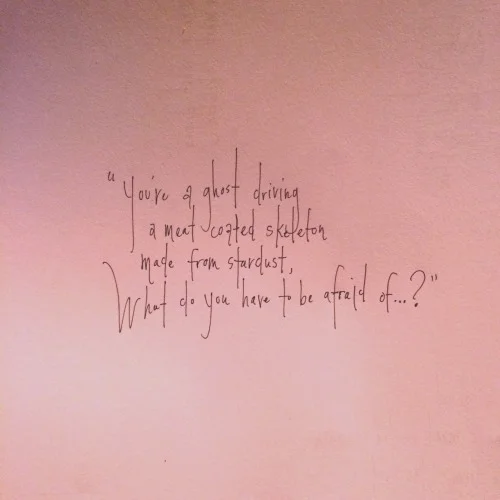 "You're a ghost driving
a meat coated skeleton
made from stardust,
What do you have to be afraid of...?"